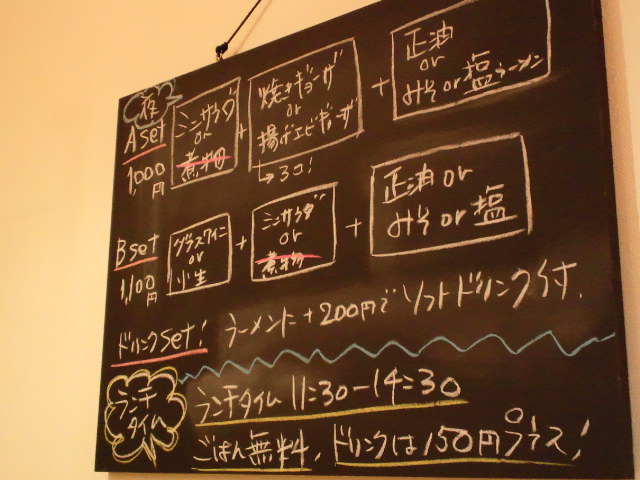 夜
A set
1,000円
ミニサラダ
or
煮物
+
焼きギョーザ
or
揚げエビギョーザ
→3コ!
+
正油
or
みそ or 塩ラーメン
B set
1,100円
グラスワイン
or
小生
+
ミニサラダ
or
煮物
+
正油 or
みそ or 塩
ドリンクset! ラーメンに+200円でソフトドリンク付.
ランチ
タイム
ランチタイム 11:30-14:30
ごはん無料, ドリンクは150円プラス!